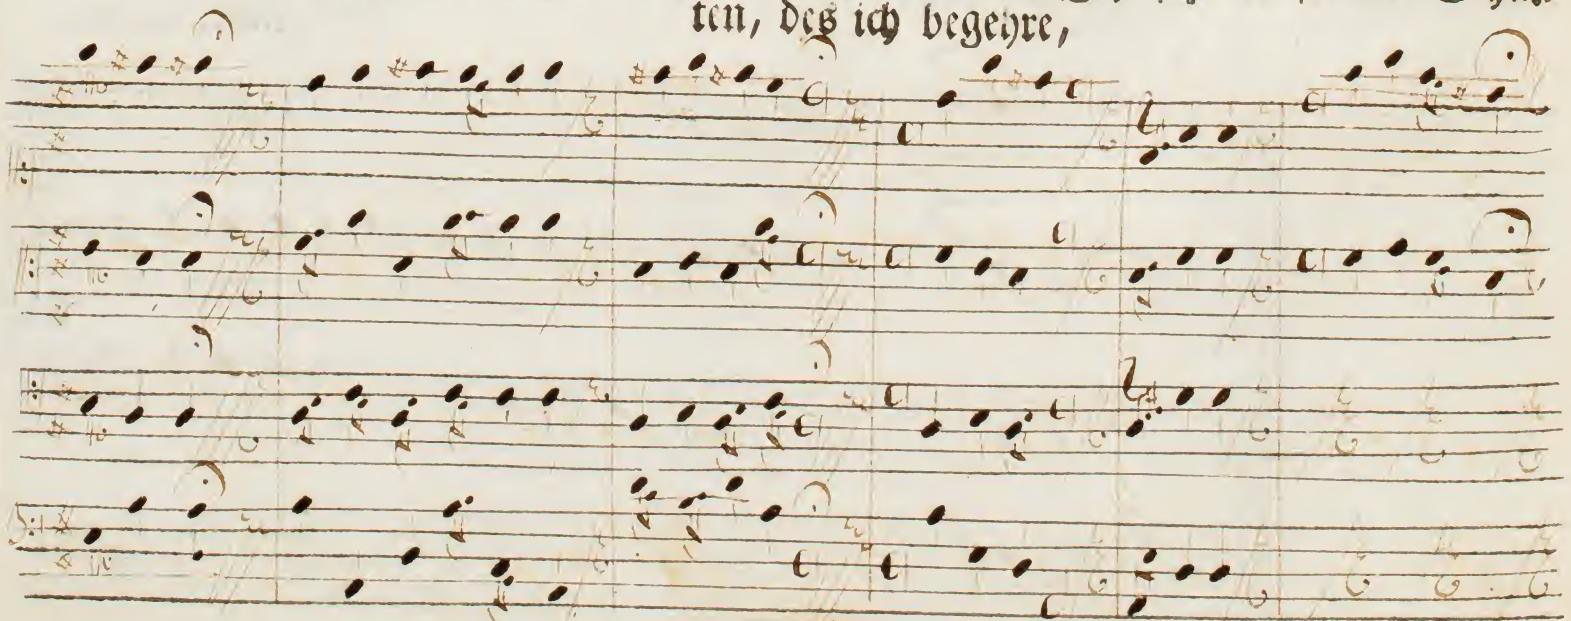 ten, des ich begehre,